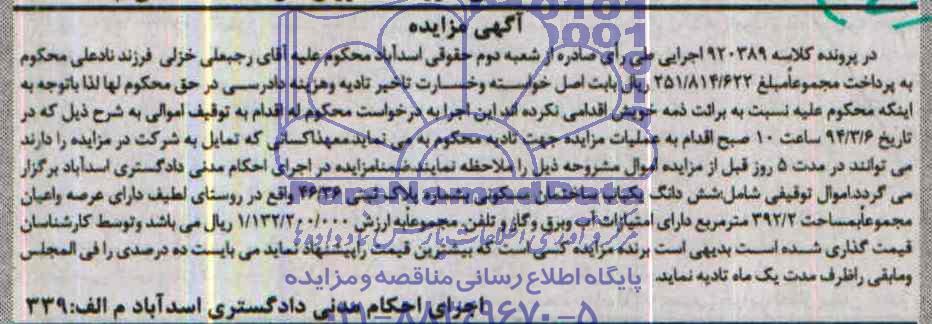 آگهی مزایده
در پرونده کلاسه ۹۲۰۳۸۹ اجرایی طی رأی صادره از شعبه دوم حقوقی اسدآباد محکوم علیه آقای رجبعلی خزلی فرزند نادعلی محکوم
به پرداخت مجموعاًمبلغ ۲۵۱/۸۱۴/۶۲۲ ریال بابت اصل خواسته وخسارت تاخیر تادیه وهزینه دادرسی در حق محکوم لها لذا باتوجه به
اینکه محکوم علیه نسبت به برائت ذمه خویش اقدامی نکرده اند این اجرا به درخواست محکوم له اقدام به توقیف اموالی به شرح ذیل که در
تاریخ ۹۴/۳/۶ ساعت ۱۰ صبح اقدام به عملیات مزایده جهت تادیه محکوم به می نماید.معهذاکسانی که تمایل به شرکت در مزایده را دارند
می توانند در مدت ۵ روز قبل از مزایده اموال مشروحه ذیل را ملاحظه نمایند.ضمنامزایده در اجرای احکام مدنی دادگستری اسدآباد برگزار
می گردد.اموال توقیفی شامل:شش دانگ یکباب ساختمان مسکونی بشماره پلاک ثبتی ۴۶/۳۶ واقع در روستای لطیف دارای عرصه واعیان
مجموعاًبمساحت ۳۹۲/۲ مترمربع دارای امتیازات آب وبرق و گاز و تلفن مجموعاًبه ارزش ۱/۱۳۲/۲۰۰/۰۰۰ ریال می باشد وتوسط کارشناسان
قیمت گذاری شده است بدیهی است برنده مزایده کسی است که بیشترین قیمت را پیشنهاد نماید می بایست ده درصدی را فی المجلس
ومابقی راظرف مدت یک ماه تادیه نماید.
اجرای احکام مدنی دادگستری اسدآباد م الف:۳۳۹
ParsNamadData
مرکز فرآوری اطلاعات پارس نماد داده ها
پایگاه اطلاع رسانی مناقصه و مزایده
۰۲۱-۸۸۳۴۹۶۷۰-۵